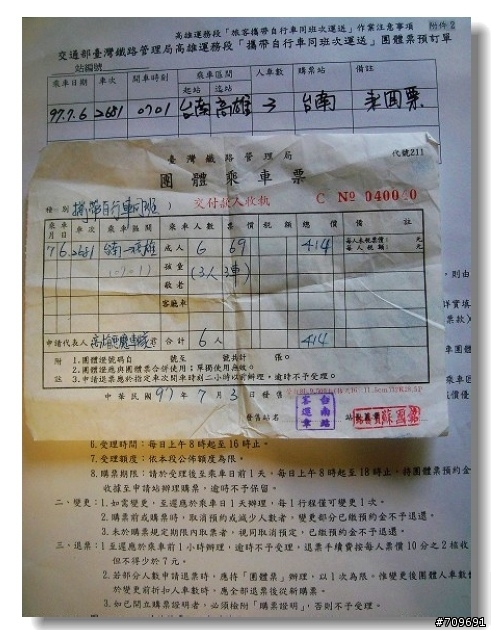 附件2
高雄運務段「旅客攜帶自行車同班次運送」作業注意事項
交通部臺灣鐵路管理局高雄運務段「攜帶自行車同班次運送」團體票預訂單
站編號
乘車日期 車次 開車時刻 乘車區間 人車數 購票站 備註
起站 迄站
97.7.6 2681 0701 台南 高雄 3 台南 來回票
臺灣鐵路管理局 代號211
團體乘車票
種別 攜帶自行車同班 ) 交付款人收執 C № 040040
乘車月日 車次 乘車區間 乘車人數 票價 稅額 總價 備註
7 6 2681 台南 高雄 成人 6 69 414 每人未稅票價: 元
每人稅額: 元
孩童 (3人3車)
敬老
客廳車
申請代表人 君 合計 6人 414
附 1.團體證號碼自 號至 號共計 張。
2.團體證應與團體票合併使用；單獨使用無效。
註 3.申請退票應於指定車次開車時刻二小時以前辦理，逾時不予受理。
中華民國97年7月3日發售
發售站名 站
台南站
6.受理時間：每日上午8時起至16時止。
7.受理額度：依本段公佈額度為限。
8.購票期限：請於受理後至乘車日前1天，每日上午8時起至18時止，將團體票預約金
收據至申請站辦理購票，逾時不予保留。
二、變更：1.如需變更，至遲應於乘車日1天辦理，每1行程僅可變更1次。
2.購票前或購票時，取消預約或減少人數者，變更部分已繳預約金不予退還。
3.未於購票規定期限內取票者，視同取消預定，已繳預約金不予退還。
三、退票：1至遲應於乘車前1小時辦理，逾時不予受理，退票手續費按每人票價10分之2核收
但不得少於7元。
2.若部分人數申請退票時，應持「團體票」辦理，以1次為限。惟變更後團體人車數
於變更前折扣人車數時，應全部退票後從新購票。
3.如已開立購票證明者，必須檢附「購票證明」，否則不予受理。
#709691